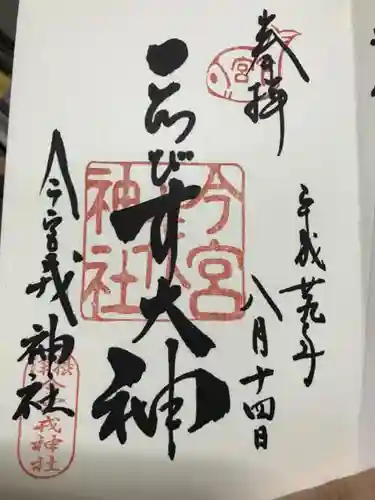 奉拝
宮
平成廿九年
八月十四日
ゑびす大神
今宮
戎
神社
今宮戎神社
戎神社